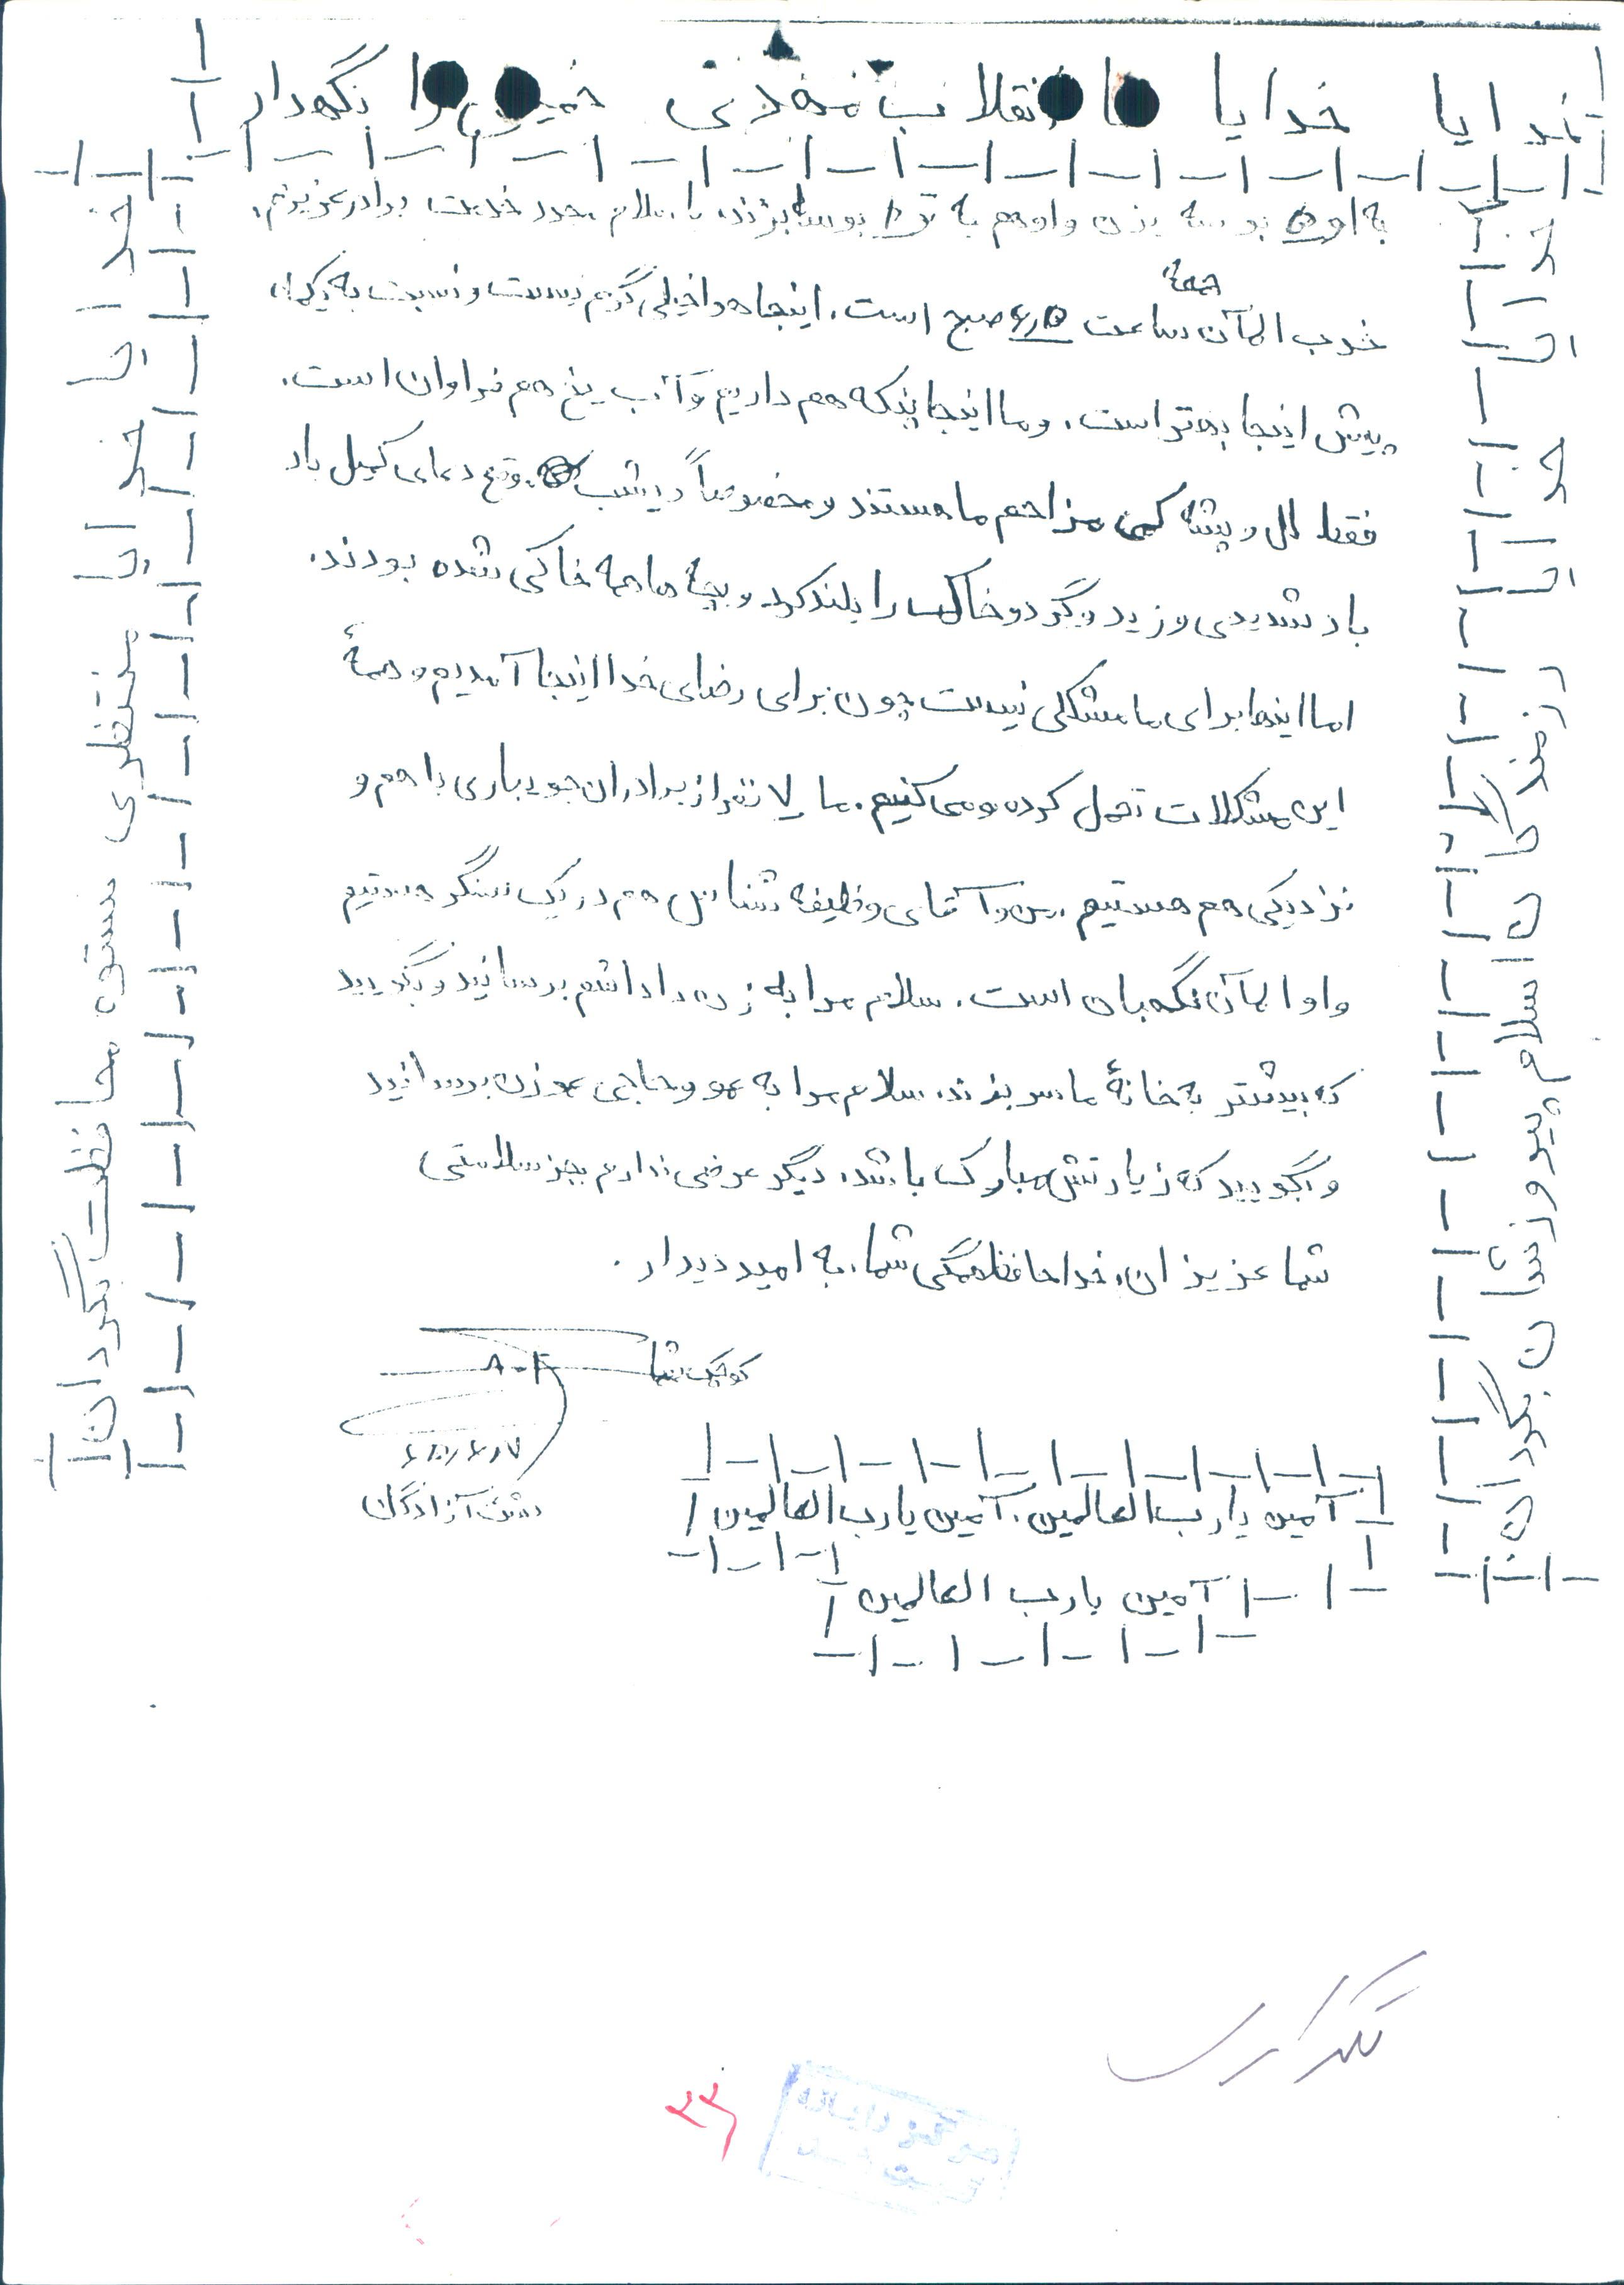 خدایا خدایا تا انقلاب مهدی خمینی را نگهدار
به او بوسه بزن و او هم به تو بوسه بزند. با سلام خدمت برادر عزیزم.
جمعه
خوب الآن ساعت ۶/۵ صبح است. اینجا هوا خیلی گرم نیست و نسبت به یکماه
پیش اینجا بهتر است. و ما اینجا پنکه هم داریم و آب یخ هم فراوان است.
فقط و پشه کمی مزاحم ما هستند و مخصوصاً دیشب موقع دعای کمیل باد
باد شدیدی وزید و گرد و خاک را بلند کرد و بچه ها همه خاکی شده بودند.
اما اینها برای ما مشکلی نیست چون برای رضای خدا اینجا آمدیم و همهٔ
این مشکلات تحمل کرده و می کنیم. ما ۷ نفر از برادران جویباری با هم و
نزدیکی هم هستیم. من و آقای وظیفه شناس هم در یک سنگر هستیم
و او الآن نگهبان است. سلام مرا به زن داداشم برسانید و بگویید
که بیشتر به خانهٔ ما سر بزند. سلام مرا به عمو و حاجی عمو زن برسانید
و بگویید که زیارتش مبارک باشد. دیگر عرضی ندارم بجز سلامتی
شما عزیزان، خداحافظ همگی شما. به امید دیدار.
کوچک شما
دشت آزادگان
آمین یا رب العالمین. آمین یا رب العالمین
آمین یا رب العالمین
خدایا خدایا رزمندگان اسلام پیروزشان بگردان
خدایا خدایا منتظری نستوه محافظت بگردان
۳۳
مرکز رایانه
ثبت شد